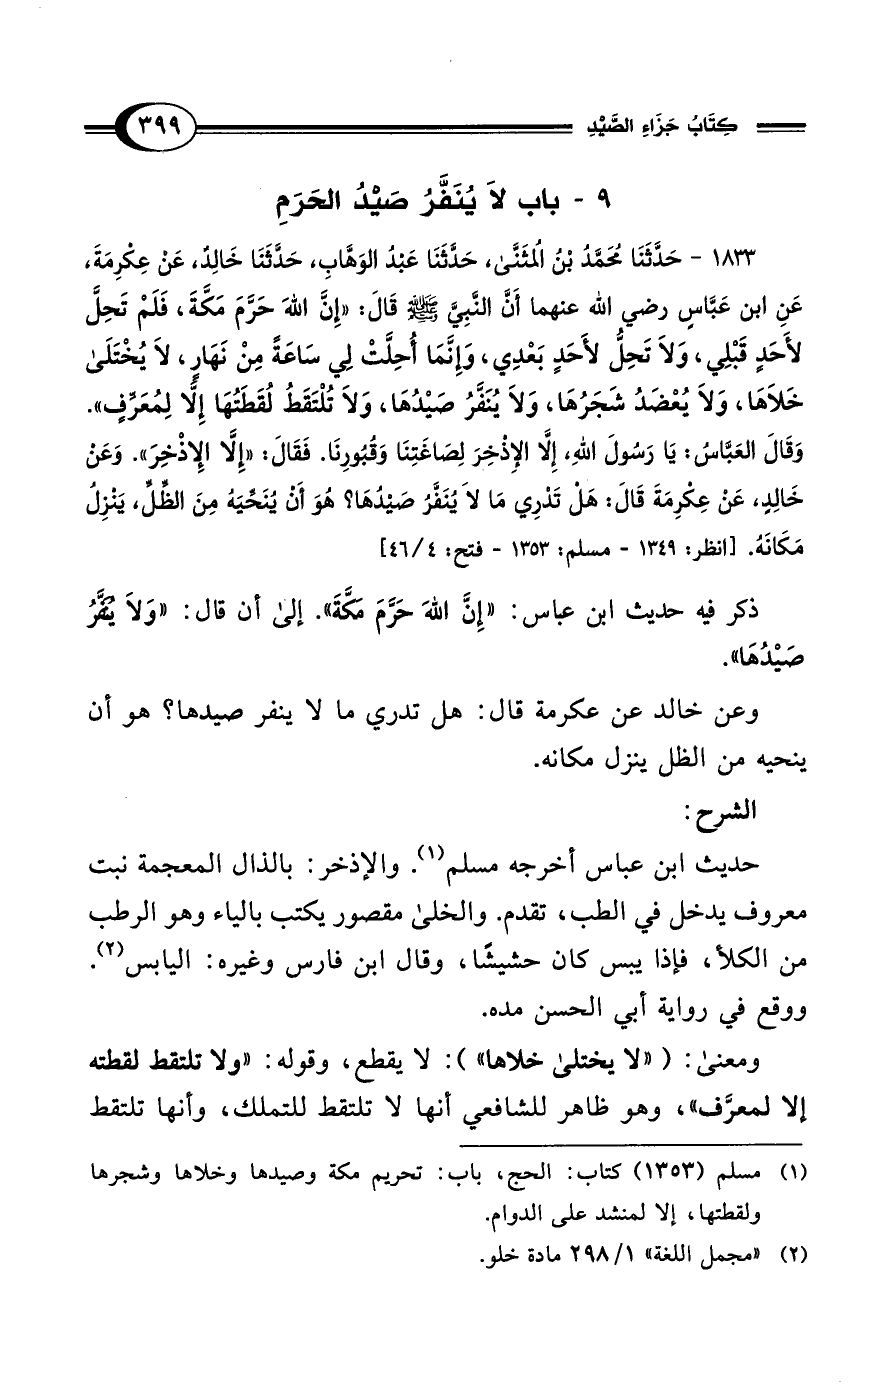 كِتَابُ جَزَاءِ الصَّيْدِ ٣٩٩
٩ - باب لاَ يُنَفَّرُ صَيْدُ الحَرَمِ
١٨٣٣ - حَدَّثَنَا مُحَمَّدُ بْنُ الْمُثَنَّىٰ، حَدَّثَنَا عَبْدُ الوَهَّابِ، حَدَّثَنَا خَالِدٌ، عَنْ عِكْرِمَةَ،
عَنِ ابن عَبَّاسٍ رضي الله عنهما أَنَّ النَّبِيَّ ﷺ قَالَ: «إِنَّ اللهَ حَرَّمَ مَكَّةَ، فَلَمْ تَحِلَّ
لأَحَدٍ قَبْلِي، وَلاَ تَحِلُّ لأَحَدٍ بَعْدِي، وَإِنَّمَا أُحِلَّتْ لِي سَاعَةً مِنْ نَهَارٍ، لاَ يُخْتَلَىٰ
خَلاَهَا، وَلاَ يُعْضَدُ شَجَرُهَا، وَلاَ يُنَفَّرُ صَيْدُهَا، وَلاَ تُلْتَقَطُ لُقَطَتُهَا إِلَّا لِمُعَرِّفٍ».
وَقَالَ العَبَّاسُ: يَا رَسُولَ اللهِ، إِلَّا الإِذْخِرَ لِصَاغَتِنَا وَقُبُورِنَا. فَقَالَ: «إِلَّا الإِذْخِرَ». وَعَنْ
خَالِدٍ، عَنْ عِكْرِمَةَ قَالَ: هَلْ تَدْرِي مَا لاَ يُنَفَّرُ صَيْدُهَا؟ هُوَ أَنْ يُنَحِّيَهُ مِنَ الظِّلِّ، يَنْزِلُ
مَكَانَهُ. [انظر: ١٣٤٩ - مسلم: ١٣٥٣ - فتح: ٤/ ٤٦]
ذكر فيه حديث ابن عباس: «إِنَّ اللهَ حَرَّمَ مَكَّةَ». إلىٰ أن قال: «وَلاَ يُنَفَّرُ
صَيْدُهَا».
وعن خالد عن عكرمة قال: هل تدري ما لا ينفر صيدها؟ هو أن
ينحيه من الظل ينزل مكانه.
الشرح:
حديث ابن عباس أخرجه مسلم(١). والإذخر: بالذال المعجمة نبت
معروف يدخل في الطب، تقدم. والخلىٰ مقصور يكتب بالياء وهو الرطب
من الكلأ، فإذا يبس كان حشيشًا، وقال ابن فارس وغيره: اليابس(٢).
ووقع في رواية أبي الحسن مده.
ومعنىٰ: ( «لا يختلىٰ خلاها» ): لا يقطع، وقوله: «ولا تلتقط لقطته
إلا لمعرَّف»، وهو ظاهر للشافعي أنها لا تلتقط للتملك، وأنها تلتقط
(١) مسلم (١٣٥٣) كتاب: الحج، باب: تحريم مكة وصيدها وخلاها وشجرها
ولقطتها، إلا لمنشد على الدوام.
(٢) «مجمل اللغة» ١/ ٢٩٨ مادة خلو.